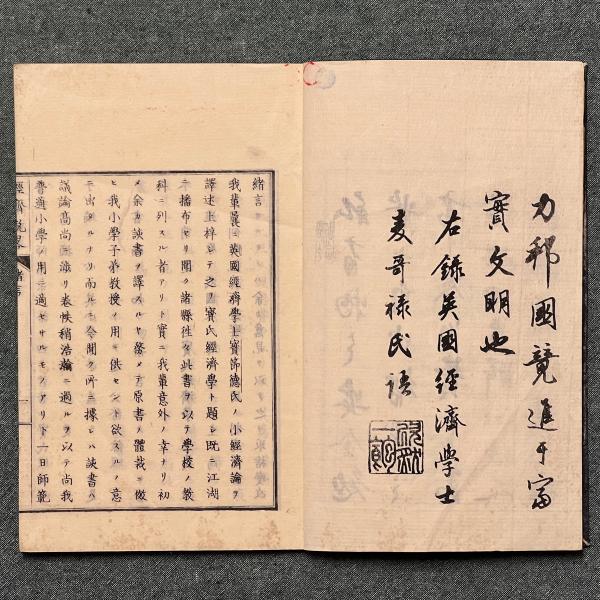 力邦國競進于富
實文明也
右錄英國經濟學士
麦哥禄氏語
緒言
我輩曩ニ英國經濟學士寳節德氏ノ小經濟論ヲ
譯述上梓シテ之ヲ寳氏經濟學ト題シ既ニ江湖
ニ播布セリ聞ク諸縣徃々此書ヲ以テ學校ノ教
科ニ列スル者アリト實ニ我輩意外ノ幸ナリ初
メ余カ該書ヲ譯スルヤ務メテ原書ノ體裁ニ傚
ヒ我小學子弟教授ノ用ニ供セント欲スルノ意
ニ出タルナリ而ルニ今聞ク所ニ據レハ該書ハ
議論高尚ニ渉リ卷帙稍浩瀚ニ過ルヲ以テ尚我
普通小學ノ用ニ適セサルモノアリト一日師範
經濟説略
緒言
一